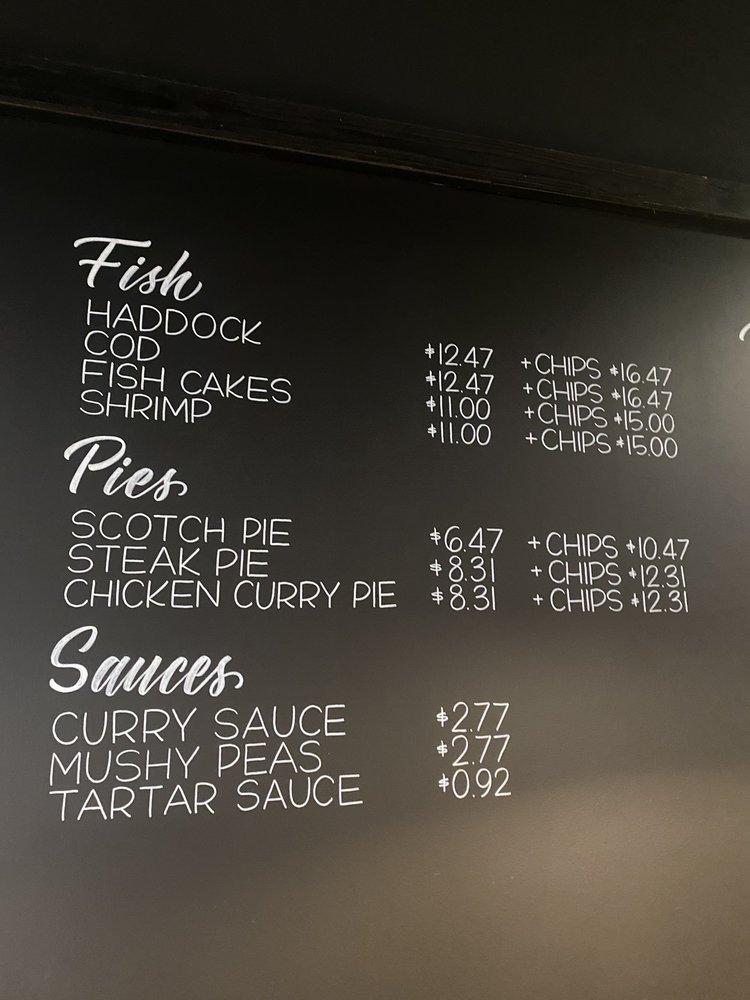 Fish
HADDOCK $12.47 + CHIPS $16.47
COD $12.47 + CHIPS $16.47
FISH CAKES $11.00 + CHIPS $15.00
SHRIMP $11.00 + CHIPS $15.00
Pies
SCOTCH PIE $6.47 + CHIPS $10.47
STEAK PIE $8.31 + CHIPS $12.31
CHICKEN CURRY PIE $8.31 + CHIPS $12.31
Sauces
CURRY SAUCE $2.77
MUSHY PEAS $2.77
TARTAR SAUCE $0.92